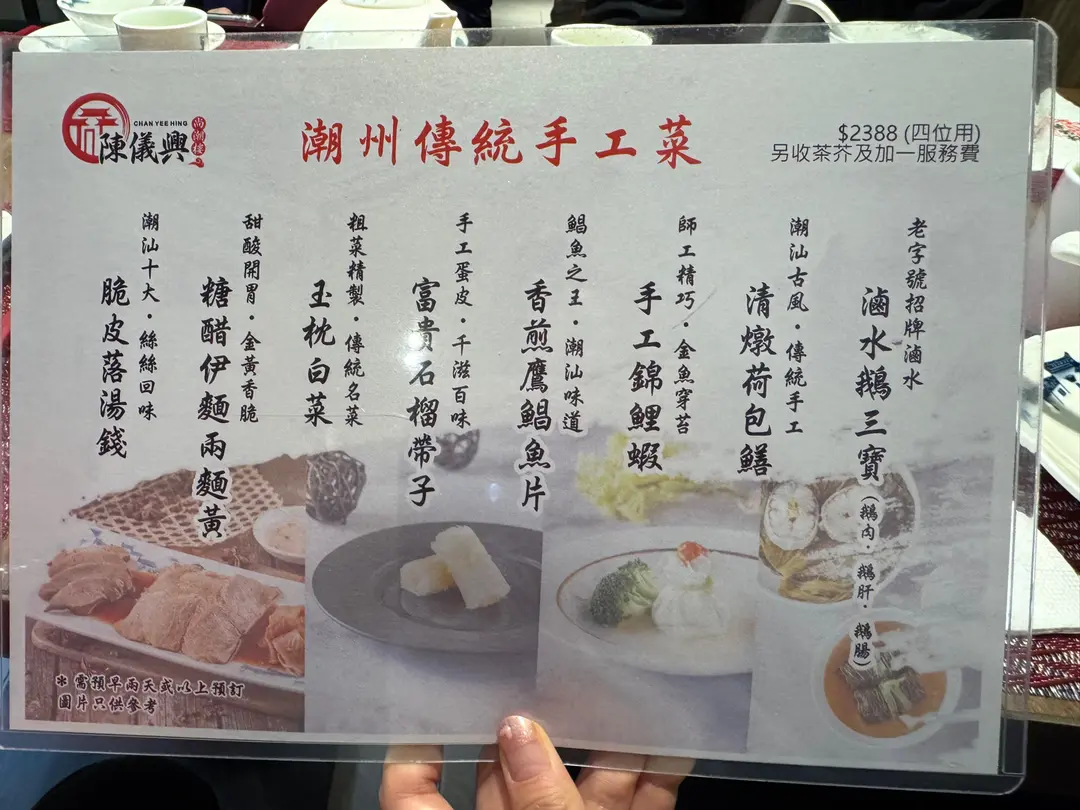 CHAN YEE HING
陳儀興
尚潮樓
潮州傳統手工菜
$2388 (四位用)
另收茶芥及加一服務費
老字號招牌滷水
滷水鵝三寶(鵝肉·鵝肝·鵝腸)
潮汕古風·傳統手工
清燉荷包鱔
師工精巧·金魚穿苔
手工錦鯉蝦
鯧魚之王·潮汕味道
香煎鷹鯧魚片
手工蛋皮·千滋百味
富貴石榴帶子
粗菜精製·傳統名菜
玉枕白菜
甜酸開胃·金黃香脆
糖醋伊麵兩麵黃
潮汕十大·絲絲回味
脆皮落湯錢
* 需預早兩天或以上預訂
圖片只供參考